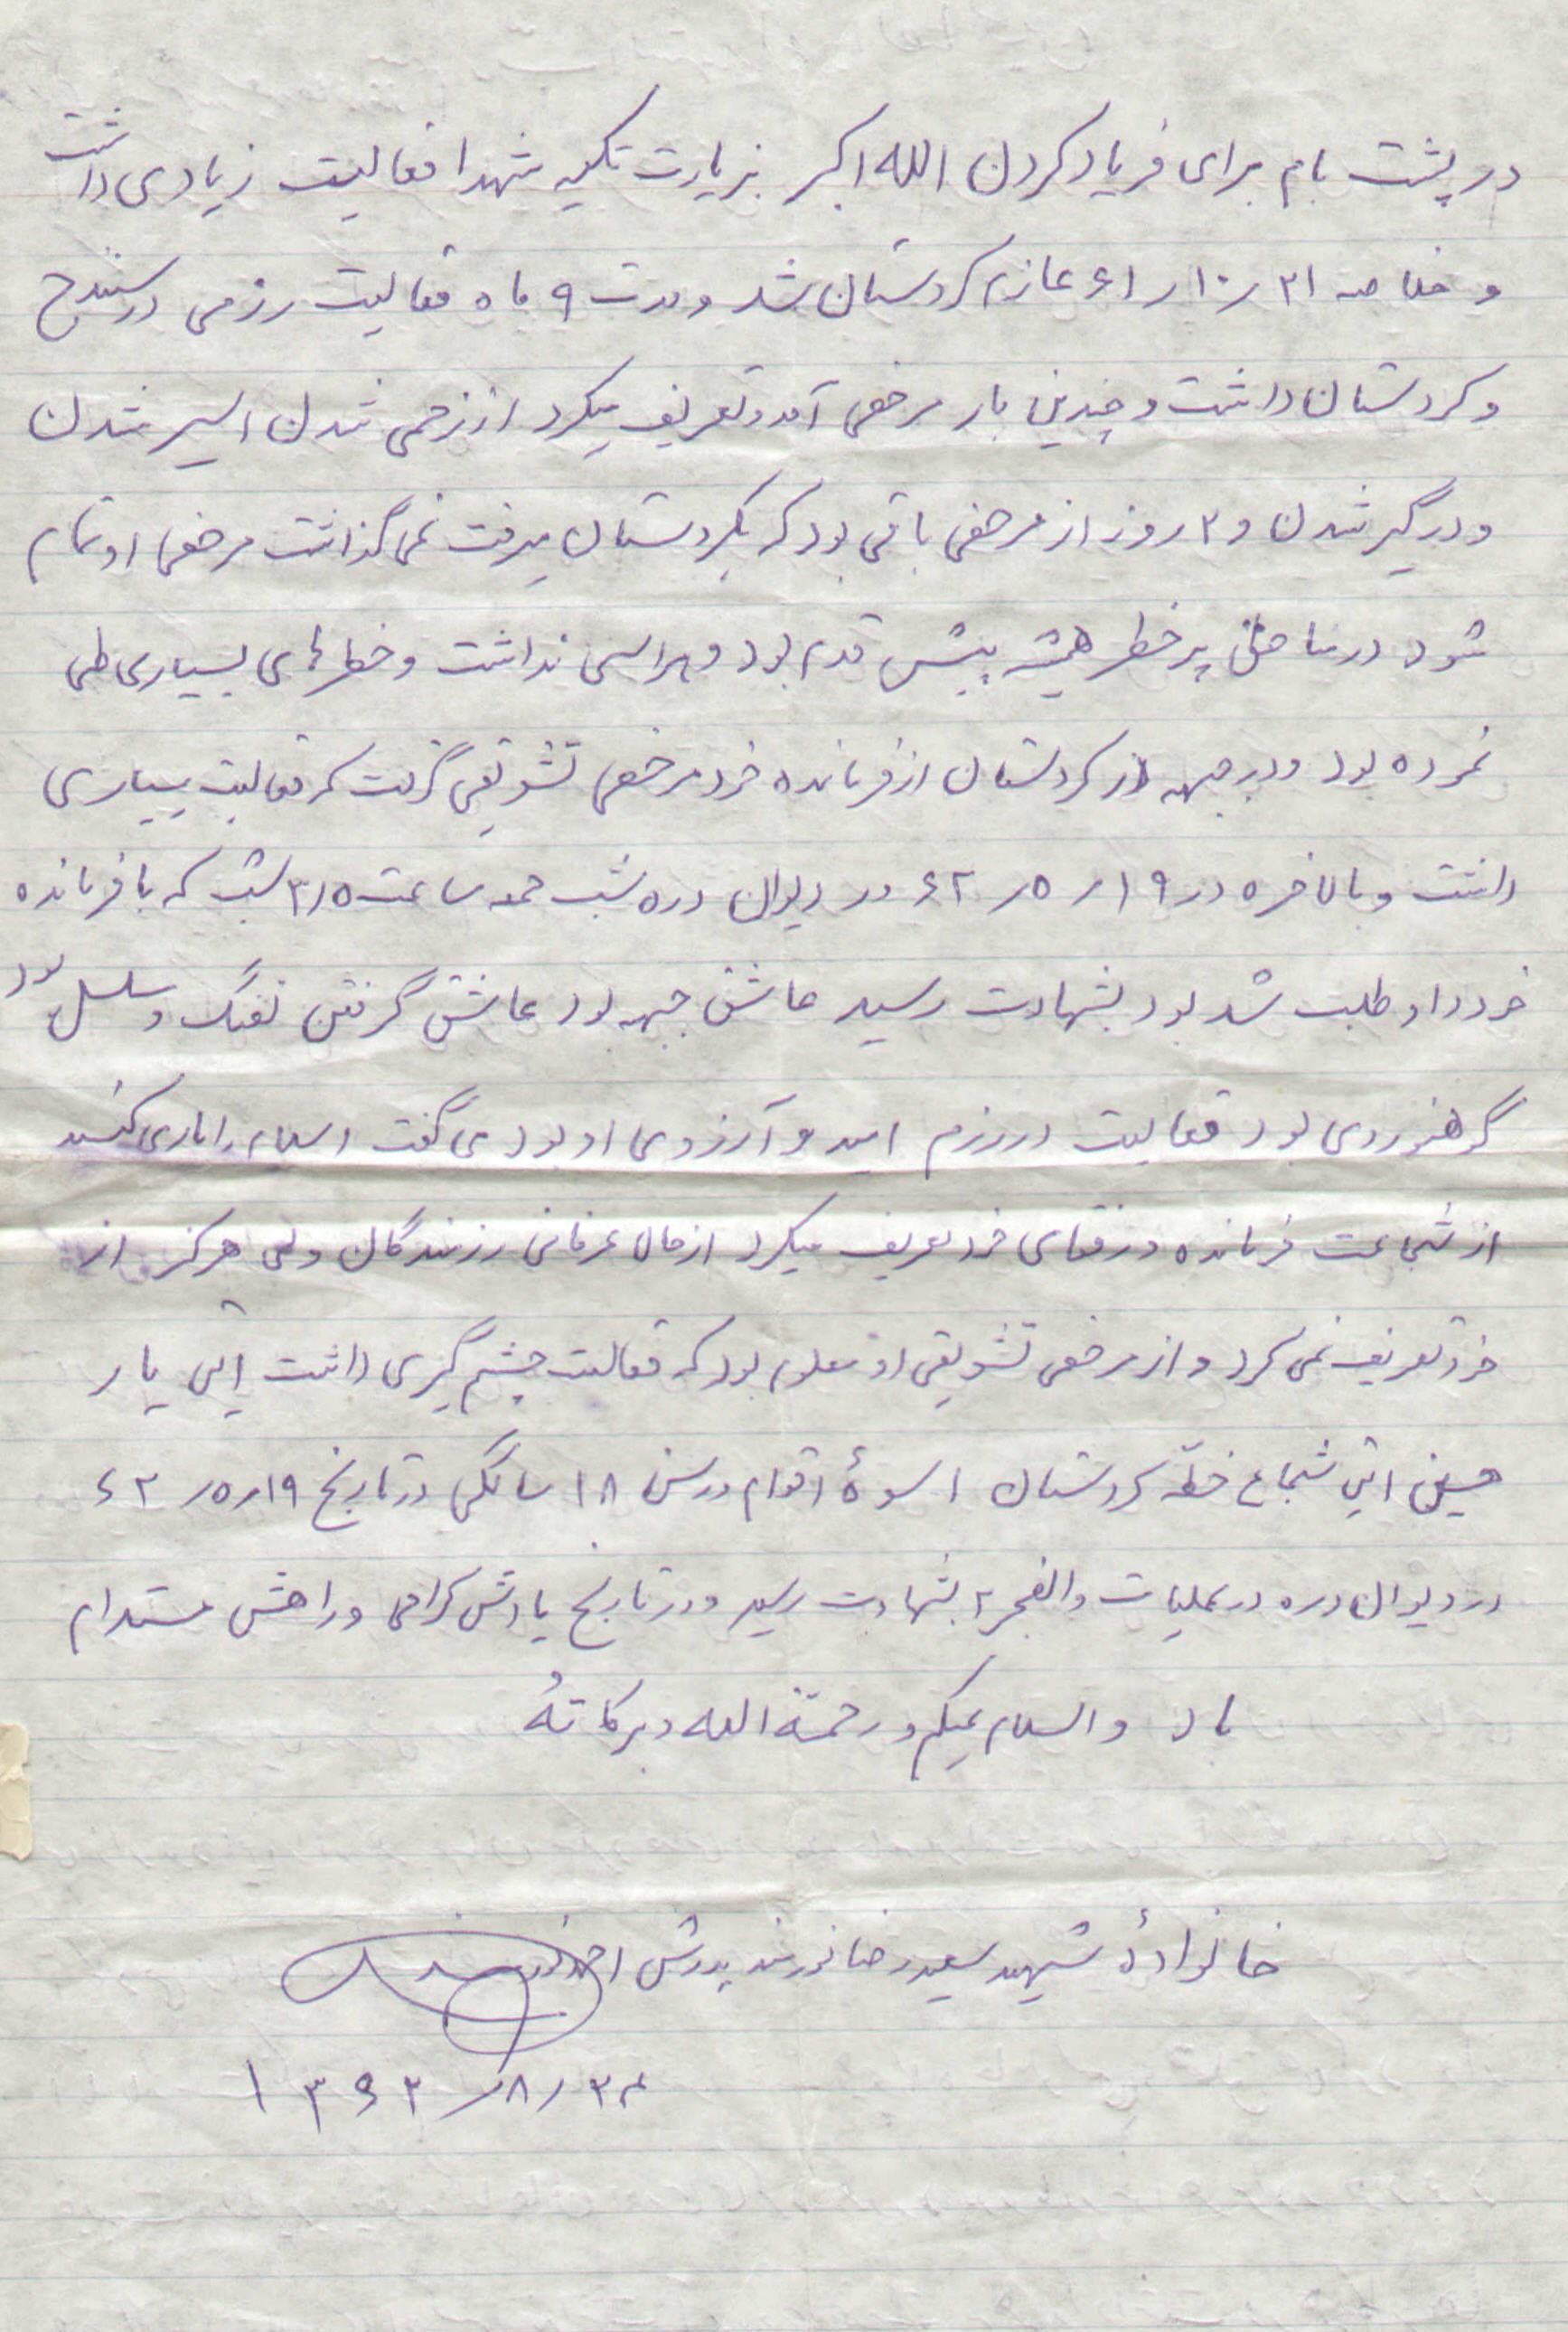 در پشت بام برای فریاد کردن الله اکبر بزیارت تکیه شهدا فعالیت زیادی داشت
و خلاصه ۲۱ ر ۱۰ ر ۶۱ عازم کردستان شد و مدت ۹ ماه فعالیت رزمی در سنندج
و کردستان داشت و چندین بار مرخصی آمد و تعریف میکرد از زخمی شدن اسیر شدن
و درگیر شدن و ۲ روز از مرخصی باقی بود که بکردستان میرفت نمی گذاشت مرخصی او تمام
شود در مناطق پر خطر همیشه پیش قدم بود و هراسی نداشت و خطرهای بسیاری طی
نموده بود و در جبهه از کردستان از فرمانده خود مرخصی تشویقی گرفت که فعالیت بسیاری
داشت و بالاخره در ۱۹ ر ۵ ر ۶۲ در دیوان دره شب جمعه ساعت ۳/۵ شب که با فرمانده
خود داوطلب شد بود بشهادت رسید عاشق جبهه بود عاشق گرفتن تفنگ و سلسل بود
کوهنوردی بود فعالیت در رزم امید و آرزوی او بود می گفت اسلام را یاری کنید
از شجاعت فرمانده و رفقای خود تعریف میکرد از حال عرفانی رزمندگان ولی هرگز از
خود تعریف نمی کرد و از مرخصی تشویقی او معلوم بود که فعالیت چشم گیری داشت این یار
حسین این شجاع خطه کردستان اسوهٔ اقوام در سن ۱۸ سالگی در تاریخ ۱۹ ر ۵ ر ۶۲
در دیوان دره در عملیات والفجر ۲ بشهادت رسید و در تاریخ یادش گرامی و راهش مستدام
باد والسلام علیکم و رحمة الله و برکاتهُ
خانوادهٔ شهید سعید رضا نورمند پدرش احمد
۱۳۶۲/۸/۲۴